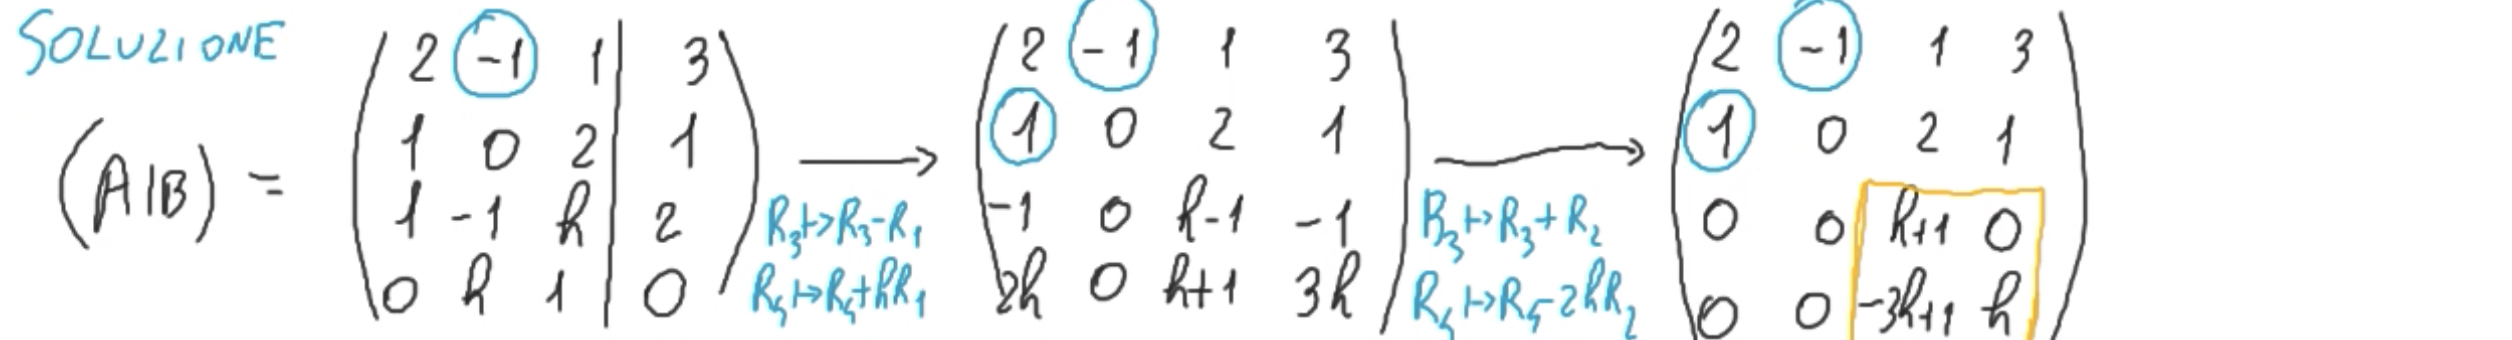 SOLUZIONE
(A|B) =
2 -1 1 | 3
1 0 2 | 1
1 -1 h | 2
0 h 1 | 0
R3↦R3-R1
R4↦R4+hR1
2 -1 1 3
1 0 2 1
-1 0 h-1 -1
2h 0 h+1 3h
R3↦R3+R2
R4↦R4-2hR2
2 -1 1 3
1 0 2 1
0 0 h+1 0
0 0 -3h+1 h